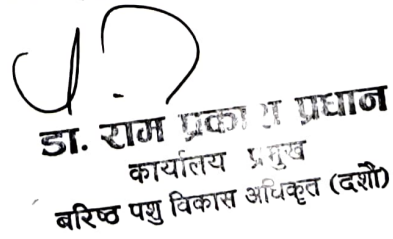 डा. राम प्रकाश प्रधान
कार्यालय प्रमुख
बरिष्ठ पशु विकास अधिकृत (दशौं)